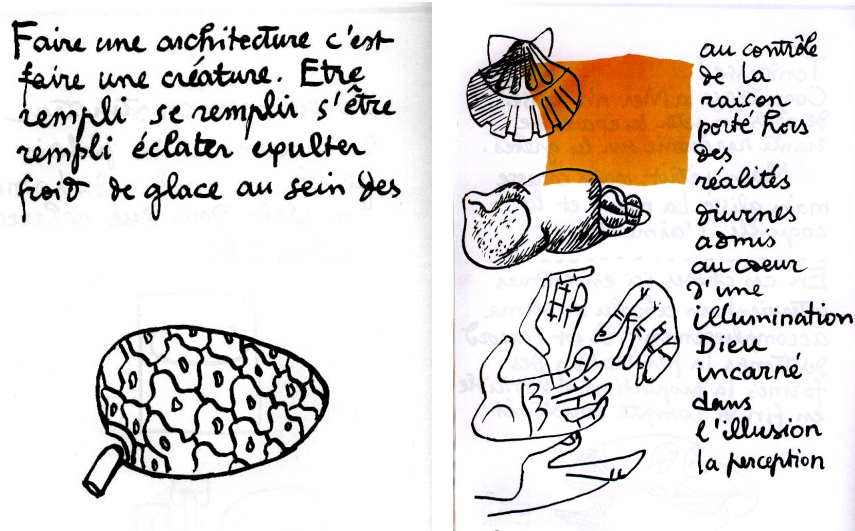 Faire une architecture c'est
faire une créature. Etre
rempli se remplir s'être
rempli éclater exulter
froid de glace au sein des
au contrôle
de la
raison
porté hors
des
réalités
diurnes
admis
au coeur
d'une
illumination
Dieu
incarné
dans
l'illusion
la perception